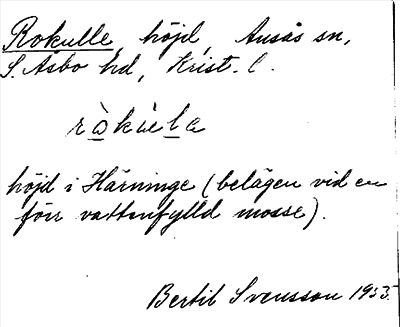 Rokulle, höjd, Ausås sn,
S. Åsbo hd, Krist. l.
ràkùla
höjd i Härninge (belägen vid en
förr vattenfylld mosse).
Bertil Svensson 1935.